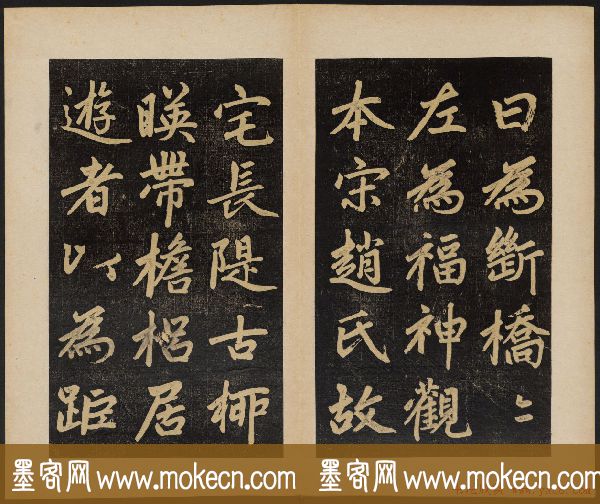 曰為斷橋〻
左為福神觀
本宋趙氏故
宅長隄古柳
暎帶檐梠居
遊者以為距
墨客网 www.mokecn.com
墨客网 www.mokecn.com